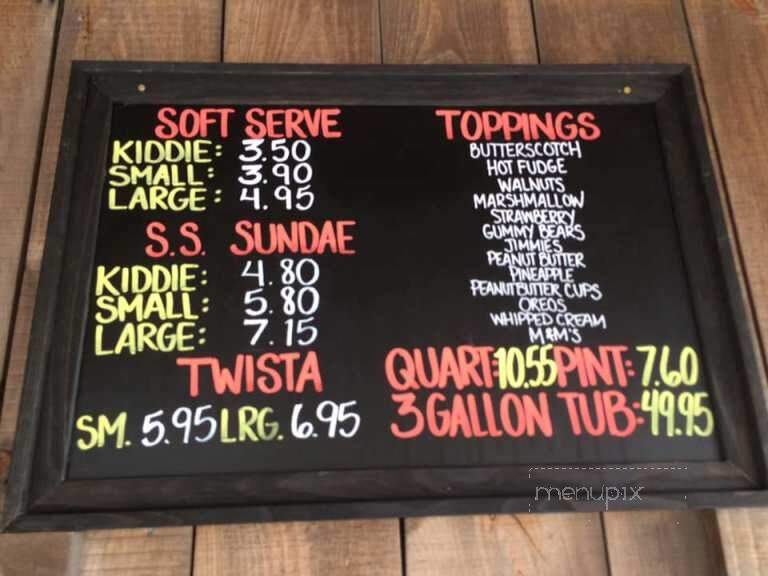 SOFT SERVE
KIDDIE: 3.50
SMALL: 3.90
LARGE: 4.95
S.S. SUNDAE
KIDDIE: 4.80
SMALL: 5.80
LARGE: 7.15
TWISTA
SM. 5.95 LRG. 6.95
TOPPINGS
BUTTERSCOTCH
HOT FUDGE
WALNUTS
MARSHMALLOW
STRAWBERRY
GUMMY BEARS
JIMMIES
PEANUT BUTTER
PINEAPPLE
PEANUT BUTTER CUPS
OREOS
WHIPPED CREAM
M&M'S
QUART: 10.55 PINT: 7.60
3 GALLON TUB: 49.95
menupix